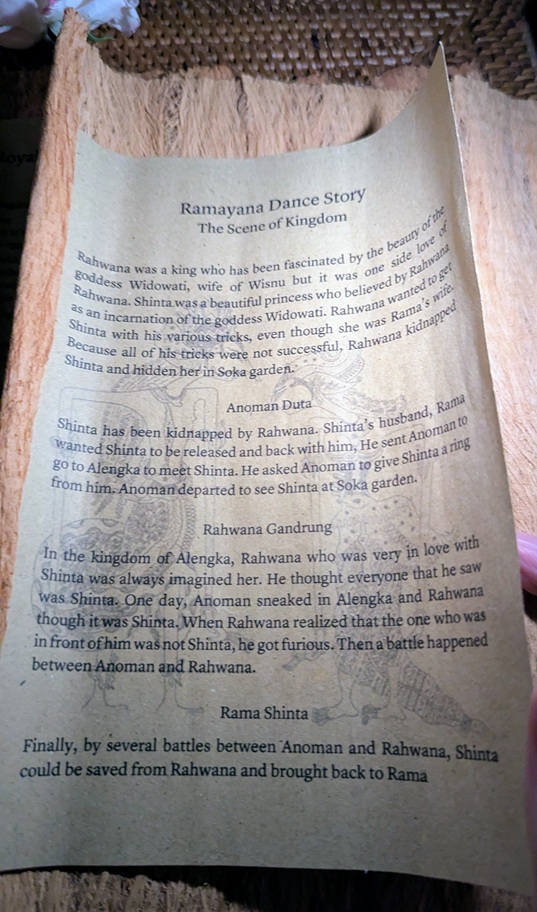 Ramayana Dance Story
The Scene of Kingdom
Rahwana was a king who has been fascinated by the beauty of the
goddess Widowati, wife of Wisnu but it was one side love of
Rahwana. Shinta was a beautiful princess who believed by Rahwana
as an incarnation of the goddess Widowati. Rahwana wanted to get
Shinta with his various tricks, even though she was Rama's wife.
Because all of his tricks were not successful, Rahwana kidnapped
Shinta and hidden her in Soka garden.
Anoman Duta
Shinta has been kidnapped by Rahwana. Shinta's husband, Rama
wanted Shinta to be released and back with him. He sent Anoman to
go to Alengka to meet Shinta. He asked Anoman to give Shinta a ring
from him. Anoman departed to see Shinta at Soka garden.
Rahwana Gandrung
In the kingdom of Alengka, Rahwana who was very in love with
Shinta was always imagined her. He thought everyone that he saw
was Shinta. One day, Anoman sneaked in Alengka and Rahwana
though it was Shinta. When Rahwana realized that the one who was
in front of him was not Shinta, he got furious. Then a battle happened
between Anoman and Rahwana.
Rama Shinta
Finally, by several battles between Anoman and Rahwana, Shinta
could be saved from Rahwana and brought back to Rama